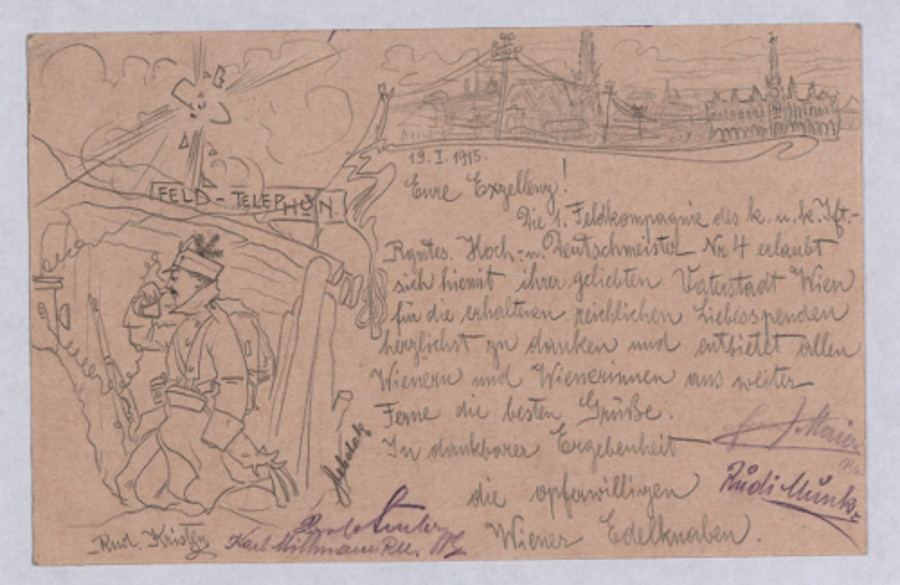 FELD-TELEPHON.
19. I. 1915.
Eure Exzellenz!
Die 1. Feldkompagnie des k. u. k. Ift.-
Rgmtes. Hoch- u. Deutschmeister Nr. 4 erlaubt
sich hiemit ihrer geliebten Vaterstadt Wien
für die erhaltenen reichlichen Liebesspenden
herzlichst zu danken und entbietet allen
Wienern und Wienerinnen aus weiter
Ferne die besten Grüße.
In dankbarer Ergebenheit
die opferwilligen
Wiener Edelknaben.
Maier
Rudi Munk
Rud. Kristen
Karl